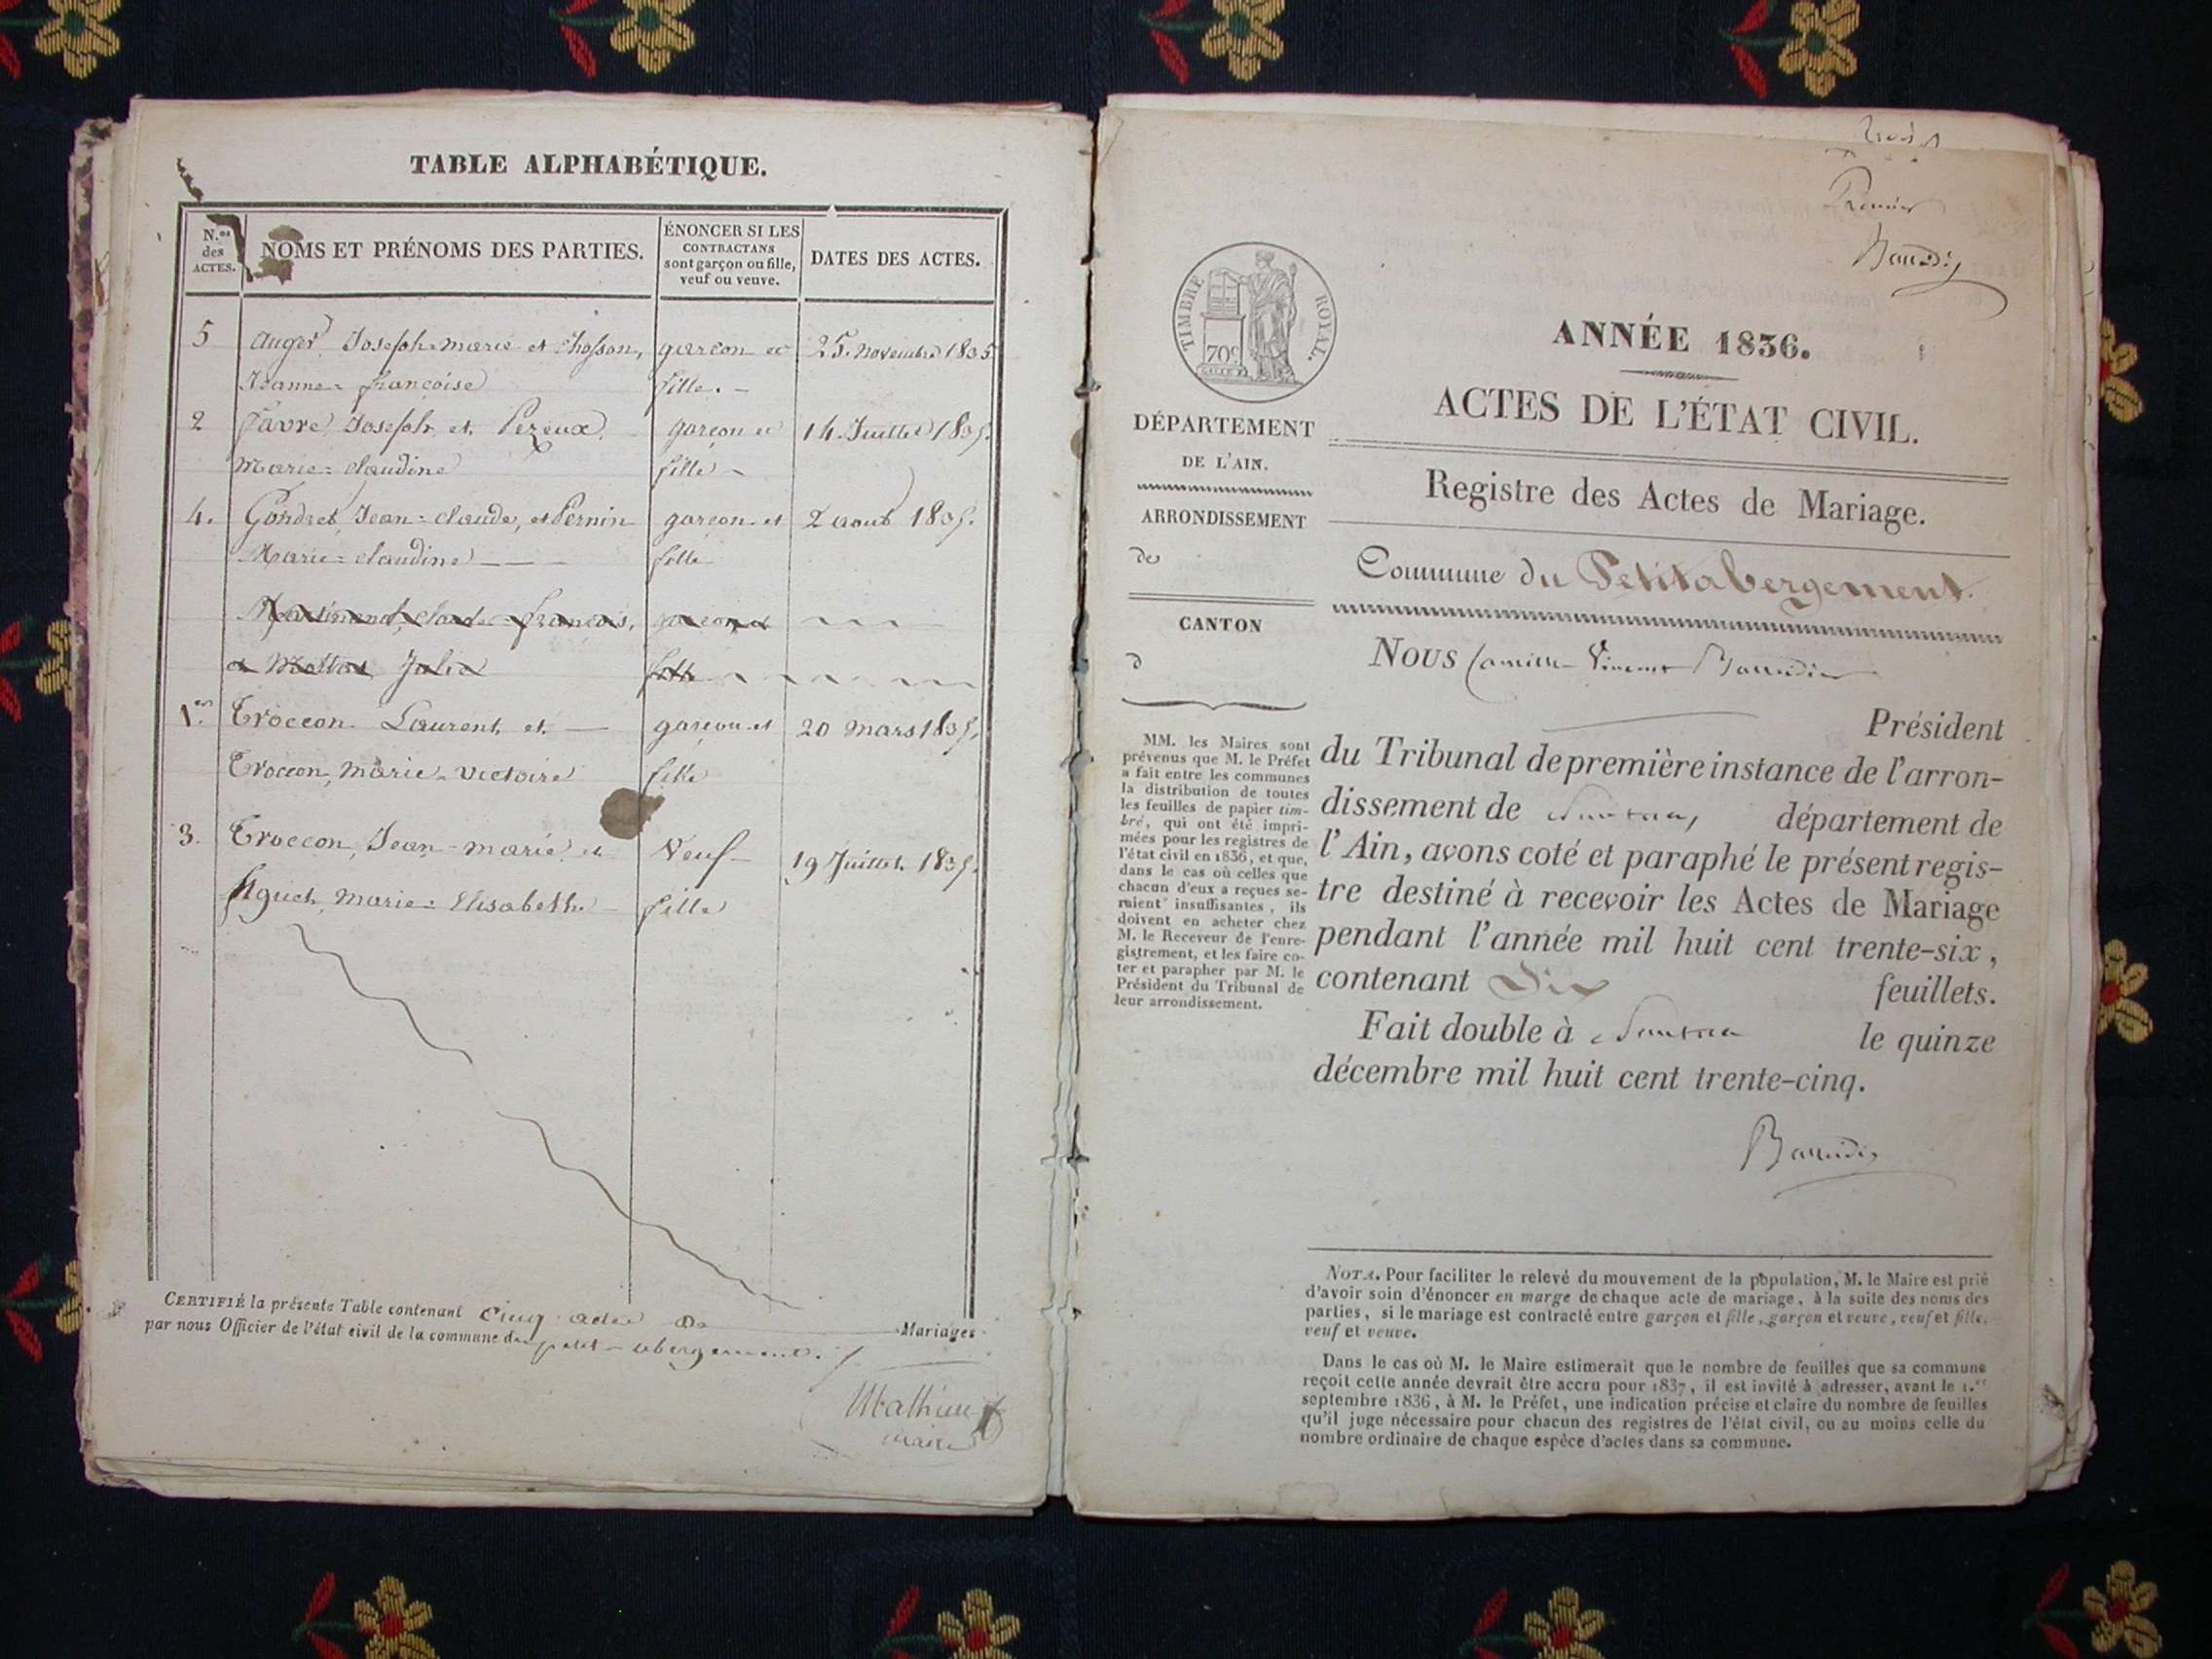 TABLE ALPHABÉTIQUE.
N.os des ACTES.
NOMS ET PRÉNOMS DES PARTIES.
ÉNONCER SI LES CONTRACTANS sont garçon ou fille, veuf ou veuve.
DATES DES ACTES.
5 Auger Joseph-marie et Chosson, garçon et 25. Novembre 1835
Jeanne-françoise fille. -
2 Favre Joseph et Pezeux garçon et 14. Juillet 1835.
Marie-claudine fille -
4. Gondret Jean-claude, et Pernin garçon et 2 aout 1835.
Marie-claudine fille
Martinand, claude françois, garçon et
et Julie fille
1er Troccon Laurent et garçon et 20 mars 1835.
Troccon, marie-victoire fille
3. Troccon, Jean-marie et Veuf 19 Juillet 1835.
marie-Elisabeth fille
CERTIFIÉ la présente Table contenant Cinq actes de Mariages
par nous Officier de l'état civil de la commune du petit-abergement.
Mathieu
maire
Premier
Baudin
TIMBRE ROYAL.
70c
ANNÉE 1836.
ACTES DE L'ÉTAT CIVIL.
Registre des Actes de Mariage.
Commune du Petit abergement.
DÉPARTEMENT
DE L'AIN.
ARRONDISSEMENT
de
CANTON
d
MM. les Maires sont
prévenus que M. le Préfet
a fait entre les communes
la distribution de toutes
les feuilles de papier tim-
bré, qui ont été impri-
mées pour les registres de
l'état civil en 1836, et que,
dans le cas où celles que
chacun d'eux a reçues se-
raient insuffisantes, ils
doivent en acheter chez
M. le Receveur de l'enre-
gistrement, et les faire co-
ter et parapher par M. le
Président du Tribunal de
leur arrondissement.
NOUS Camille Vincent
Président
du Tribunal de première instance de l'arron-
dissement de Nantua, département de
l'Ain, avons coté et paraphé le présent regis-
tre destiné à recevoir les Actes de Mariage
pendant l'année mil huit cent trente-six,
contenant Six feuillets.
Fait double à Nantua le quinze
décembre mil huit cent trente-cinq.
NOTA. Pour faciliter le relevé du mouvement de la population, M. le Maire est prié
d'avoir soin d'énoncer en marge de chaque acte de mariage, à la suite des noms des
parties, si le mariage est contracté entre garçon et fille, garçon et veuve, veuf et fille,
veuf et veuve.
Dans le cas où M. le Maire estimerait que le nombre de feuilles que sa commune
reçoit cette année devrait être accru pour 1837, il est invité à adresser, avant le 1.er
septembre 1836, à M. le Préfet, une indication précise et claire du nombre de feuilles
qu'il juge nécessaire pour chacun des registres de l'état civil, ou au moins celle du
nombre ordinaire de chaque espèce d'actes dans sa commune.